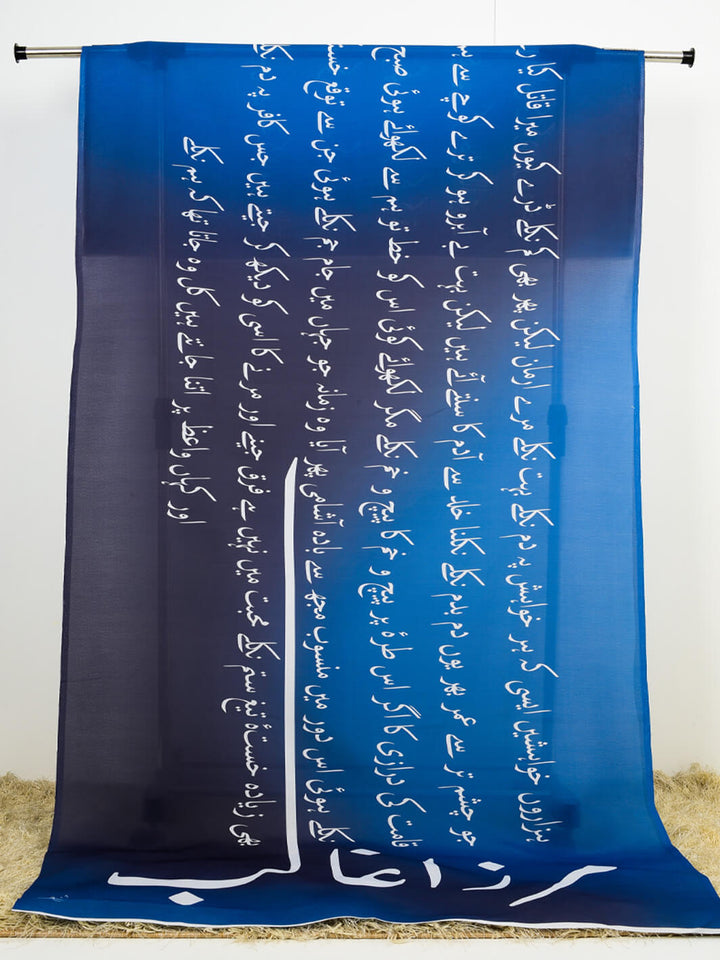 ہزاروں خواہشیں ایسی کہ ہر خواہش پہ دم نکلے بہت نکلے مرے ارمان لیکن پھر بھی کم نکلے ڈرے کیوں میرا قاتل کیا
جو چشم تر سے عمر بھر یوں دم بدم نکلے نکلنا خلد سے آدم کا سنتے آئے ہیں لیکن بہت بے آبرو ہو کر ترے کوچے سے
قامت کی درازی کا اگر اس طرۂ پر پیچ و خم کا پیچ و خم نکلے مگر لکھوائے کوئی اس کو خط تو ہم سے لکھوائے ہوئی صبح
نکلے ہوئی اس دور میں منسوب مجھ سے بادہ آشامی پھر آیا وہ زمانہ جو جہاں میں جام جم نکلے ہوئی جن سے توقع
بھی زیادہ خستۂ تیغ ستم نکلے محبت میں نہیں ہے فرق جینے اور مرنے کا اسی کو دیکھ کر جیتے ہیں جس کافر پہ دم
اور کہاں واعظ پر اتنا جانتے ہیں کل وہ جاتا تھا کہ ہم نکلے
مرزا غالب